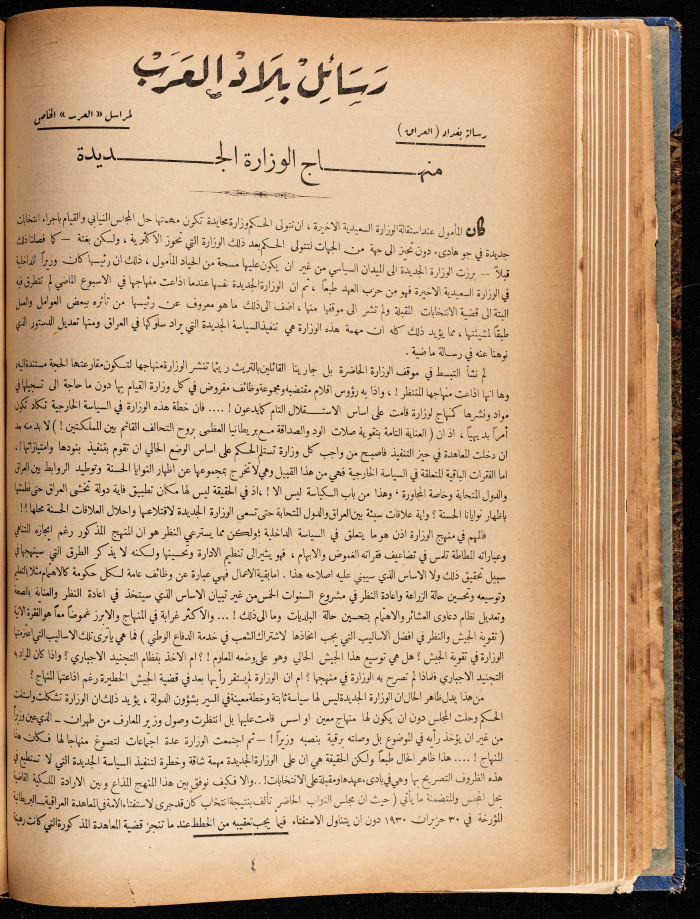 رَسَائِلْ بِلَادْ العَرَبْ
رسالة بغداد (العراق)
لمراسل «العرب» الخاص
منهــاج الوزارة الجــديدة
كان المأمول عند استقالة الوزارة السعيدية الاخيرة ، ان تتولى الحكم وزارة محايدة تكون مهمتها حل المجلس النيابي والقيام باجراء انتخابات
جديدة في جو هادىء، دون تحيز الى جهة من الجهات لتتولى الحكم بعد ذلك الوزارة التي تحوز الأكثرية ، ولكن بغتة – كما فصلنا ذلك
قبلاً – برزت الوزارة الجديدة الى الميدان السياسي من غير ان يكون عليها مسحة من الحياد المأمول ، ذلك ان رئيسها كان وزيراً للداخلية
في الوزارة السعيدية الاخيرة فهو من حزب العهد طبعاً ، ثم ان الوزارة الجديدة نفسها عندما اذاعت منهاجها في الاسبوع الماضي لم تتطرق فيه
البتة الى قضية الانتخابات المقبلة ولم تشر الى موقفها منها ، اضف الى ذلك ما هو معروف عن رئيسها من تأثره ببعض العوامل والعمل
طبقاً لمشيئتها ، مما يؤيد ذلك كله ان مهمة هذه الوزارة هي تنفيذ السياسة الجديدة التي يراد سلوكها في العراق ومنها تعديل الدستور الذي
نوهنا عنه في رسالة ماضية .
لم نشأ التبسط في موقف الوزارة الحاضرة بل جارينا القائلين بالتريث ريثما تنشر الوزارة منهاجها لتكون مقارعتها الحجة مستندة اليه،
وها انها اذاعت منهاجها المنتظر ! ، واذا به رؤوس اقلام مقتضبة ومجموعة وظائف مفروض في كل وزارة القيام بها دون ما حاجة الى تسجيلها في
مواد ونشرها كمنهاج لوزارة قامت على اساس الاستــقلال التام كما يدعون ! .... فان خطة هذه الوزارة في السياسة الخارجية تكاد تكون
أمراً بديهياً ، اذ ان ( العناية التامة بتقوية صلات الود والصداقة مع بريطانيا العظمى بروح التحالف القائم بين المملكتين ! ) لا بد منه بعد
ان دخلت المعاهدة في حيز التنفيذ فاصبح من واجب كل وزارة تستلم الحكم على اساس الوضع الحالي ان تقوم بتنفيذ بنودها وامتيازاتها !،
اما الفقرات الباقية المتعلقة في السياسة الخارجية فهي من هذا القبيل وهي لا تخرج بمجموعها عن اظهار النوايا الحسنة وتوطيد الروابط بين العراق
والدول المتحابة وخاصة المجاورة ، وهذا من باب السياسة ليس الا ! ، اذ في الحقيقة ليس لها مكان تطبيق فاية دولة تخشى العراق حتى نطمئنها
باظهار نوايانا الحسنة ؟ واية علاقات سيئة بين العراق والدول المتحابة حتى تسعى الوزارة الجديدة لاقتلاعها واحلال العلاقات الحسنة محلها ؟!
فالمهم في منهج الوزارة اذن هو ما يتعلق في السياسة الداخلية ؛ ولكن مما يسترعي النظر هو ان المنهج المذكور رغم ايجازه المتناهي
وعباراته المطاطة تلمس في تضاعيف فقراته الغموض والابهام ، فهو يشير الى تنظيم الادارة وتحسينها ولكنه لا يذكر الطرق التي سينهجها في
سبيل تحقيق ذلك ولا الاساس الذي سيبني عليه اصلاحه هذا . اما بقية الاعمال فهي عبارة عن وظائف عامة لكل حكومة كالاهتمام مثلا بالتعليم
وتوسيعه وتحسين حالة الزراعة واعادة النظر في مشروع السنوات الخمس من غير تبيان الاساس الذي سيتخذ في اعادة النظر والعناية بالصحة
وتعديل نظام دعاوى العشائر والاهتمام بتحسين حالة البلديات وما الى ذلك ! ... والأكثر غرابة في المنهاج والابرز غموضاً معاً هو الفقرة الآتية
( تقوية الجيش والنظر في افضل الاساليب التي يجب اتخاذها لاشتراك الشعب في خدمة الدفاع الوطني ) فما هي يا ترى تلك الاساليب التي اعتزمتها
الوزارة في تقوية الجيش ؟ هل هي توسيع هذا الجيش الحالي وهو على وضعه المعلوم ! ؟ ام الاخذ بنظام التجنيد الاجباري ؟ واذا كان المراد به
التجنيد الاجباري فلماذا لم تصرح به الوزارة في منهجها ؟ ام ان الوزارة لم يستقر رأيها بعد في قضية الجيش الخطيرة رغم اذاعتها المنهاج ؟
من هذا يدل ظاهر الحال ان الوزارة الجديدة ليس لها سياسة ثابتة وخطة معينة في السير بشؤون الدولة ، يؤيد ذلك ان الوزارة تشكلت واستلمت
الحكم وحلت المجلس دون ان يكون لها منهاج معين او اسس قامت عليها بل انتظرت وصول وزير المعارف من طهران – الذي عين وزيراً
من غير ان يؤخذ رأيه في الموضوع بل وصلته برقية بنصبه وزيراً ! – ثم اجتمعت الوزارة عدة اجتماعات لتصوغ منهاجا لها فكان هذا
المنهاج ! .... هذا ظاهر الحال طبعاً ولكن الحقيقة هي ان على الوزارة الجديدة مهمة شاقة وخطرة لتنفيذ السياسة الجديدة التي لا تستطيع في
هذه الظروف التصريح بها وهي في بادىء عهدها ومقبلة على الانتخابات ! .. والا فكيف نوفق بين هذا المنهج المذاع وبين الارادة الملكية القاضية
بحل المجلس والمتضمنة ما يأتي ( حيث ان مجلس النواب الحاضر تألف بنتيجة انتخاب كان قد جرى لاستفتاء الامة في المعاهدة العراقية – البريطانية
المؤرخة في ٣٠ حزيران ١٩٣٠ دون ان يتناول الاستفتاء فيما يجب تعقيبه من الخطط عند ما تنجز قضية المعاهدة المذكورة التي كانت رهينة
٤